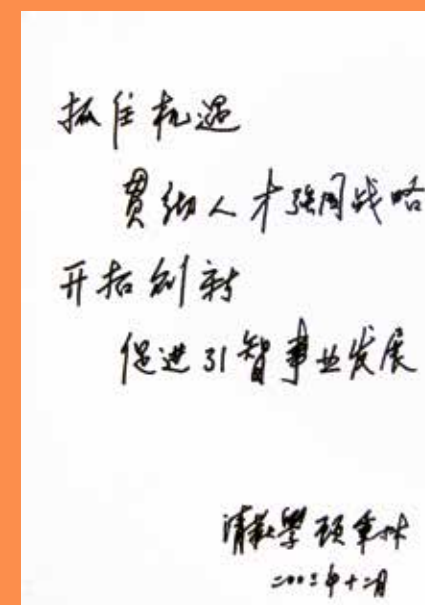 抓住机遇
贯彻人才强国战略
开拓创新
促进引智事业发展
清华大学 顾秉林
二〇〇三年十二月